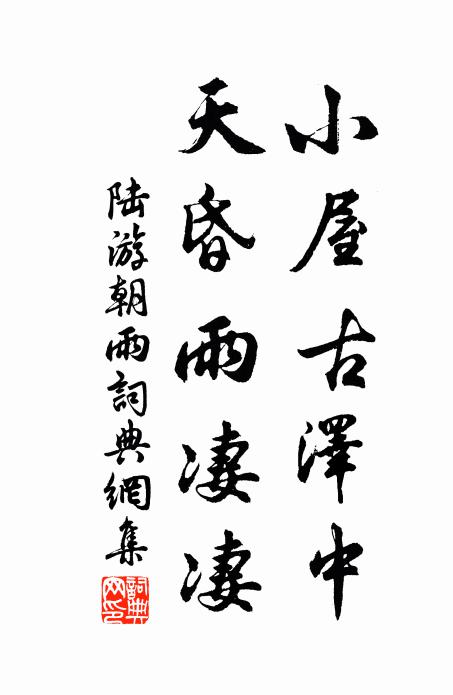 小屋古澤中
天昏雨凄凄
陸游朝雨詞典網集
詞典網印